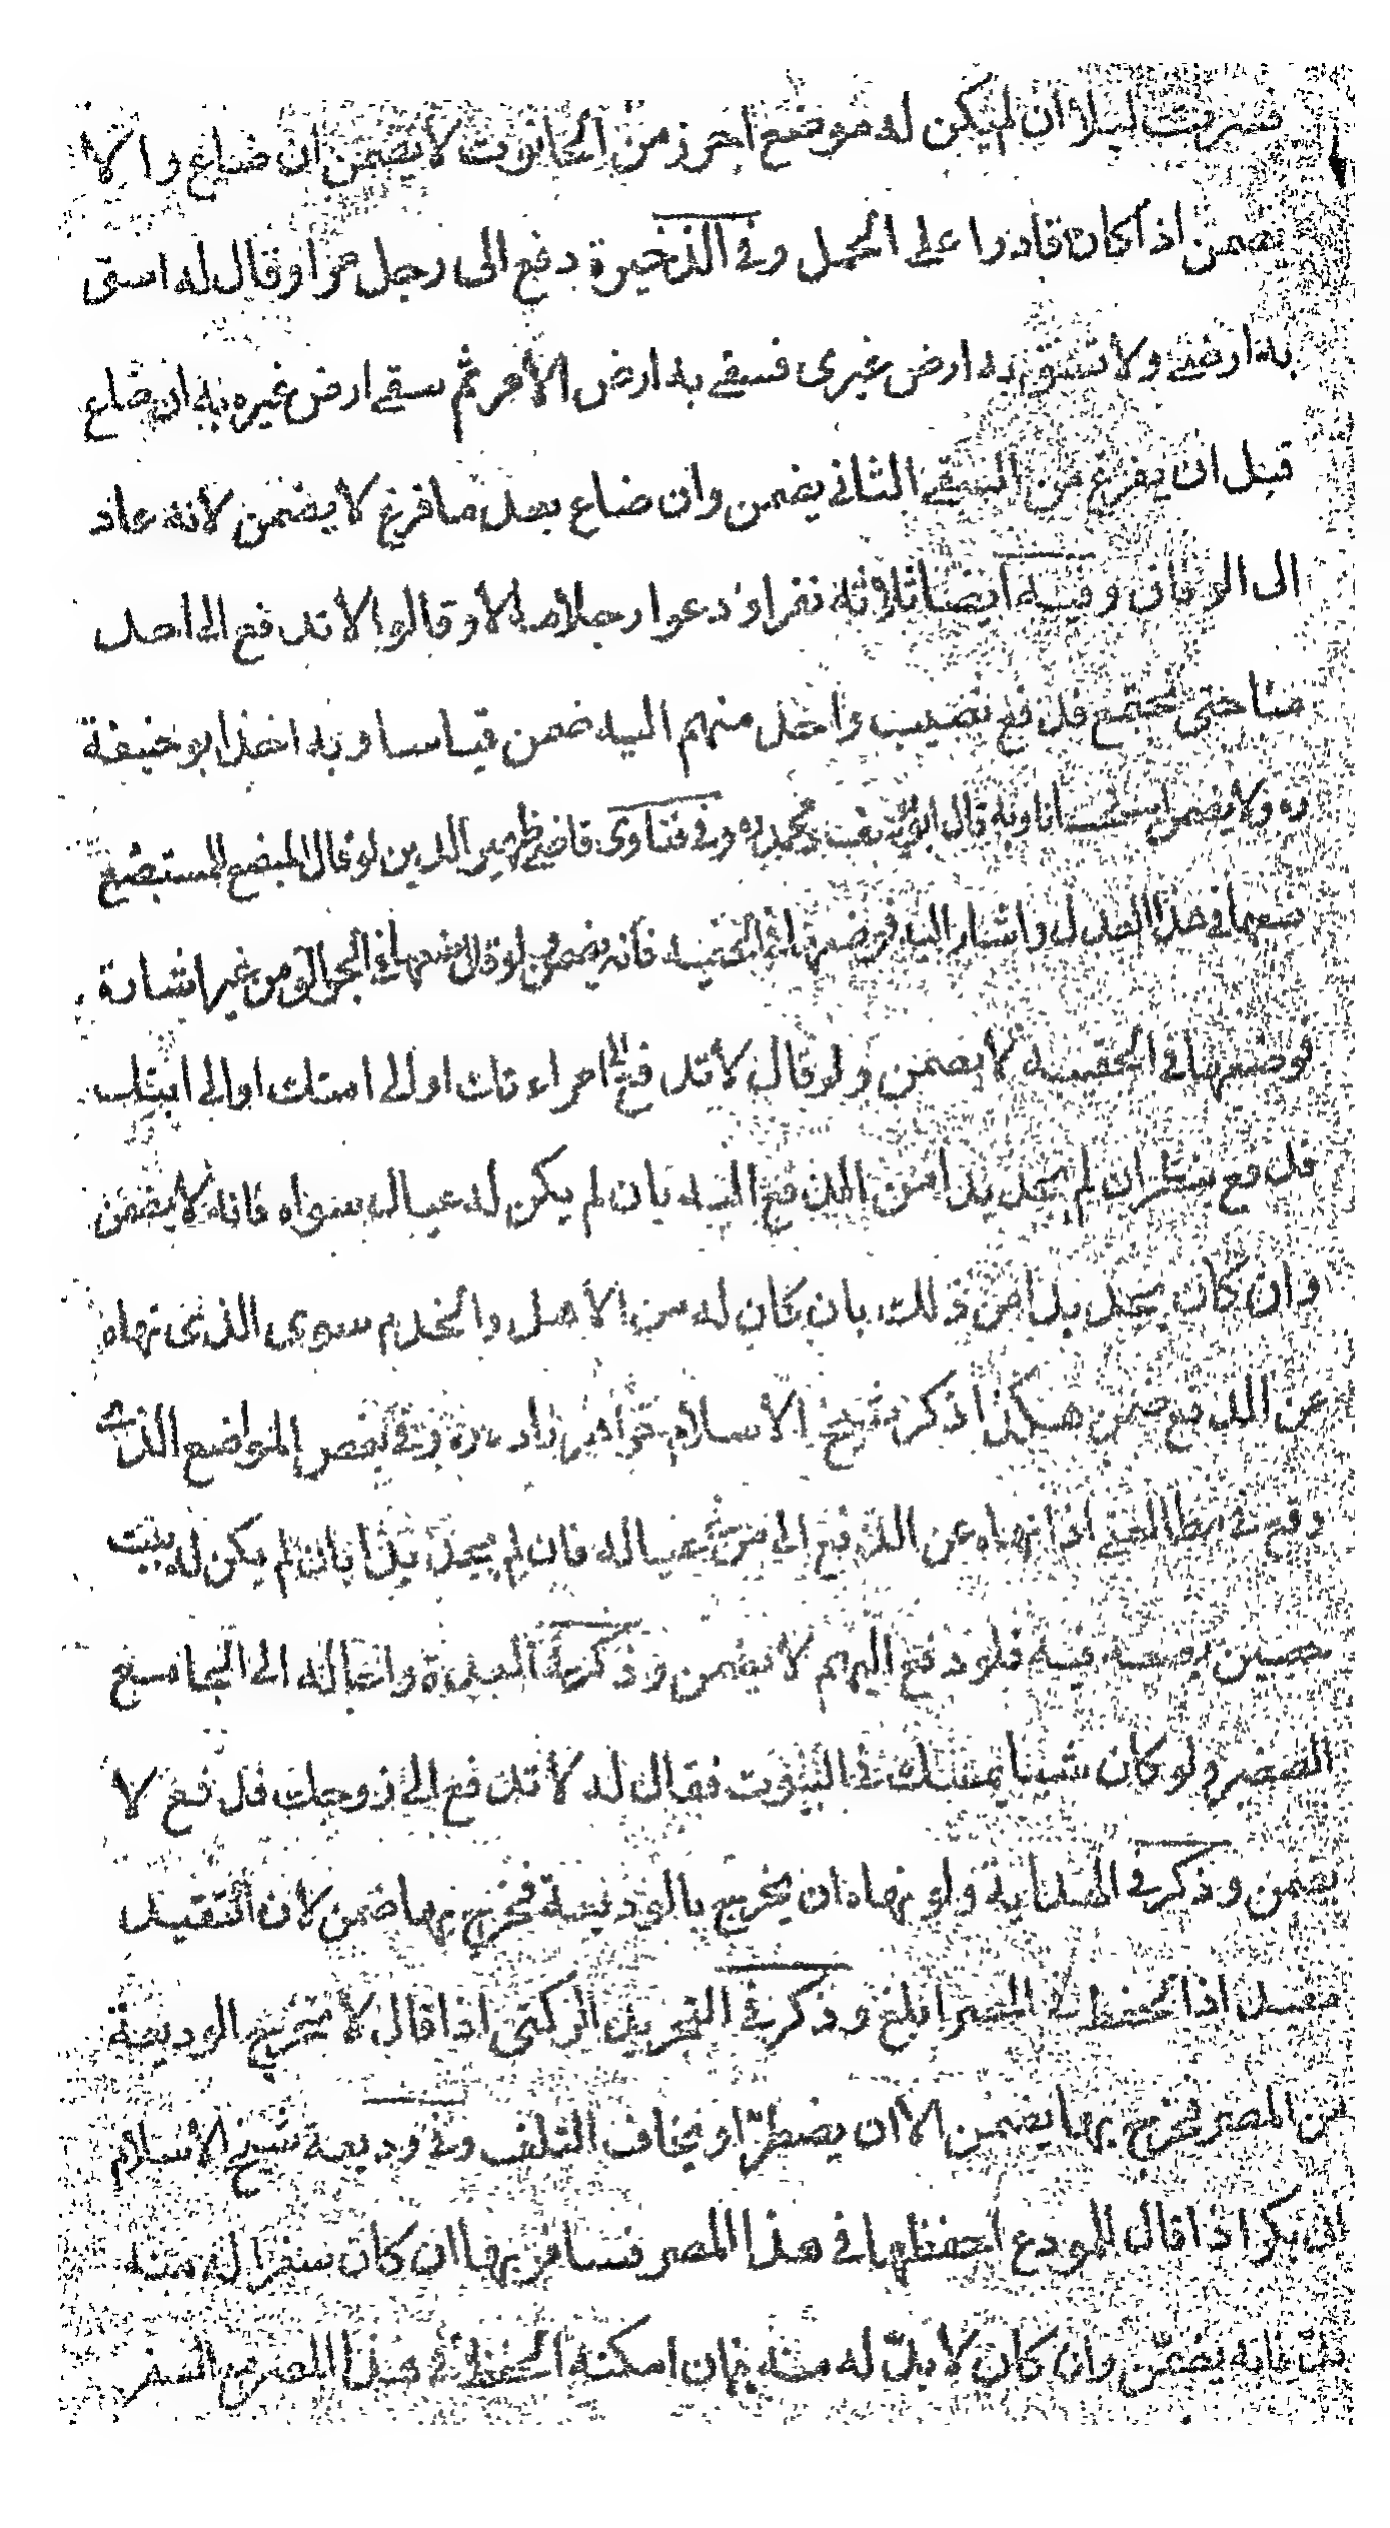 فسرقت ليلا ان لم يكن له موضع احرز من الحانوت لا يضمن ان ضاع والا
يضمن اذا كان قادرا على الحمل وفى الذخيرة دفع الى رجل مرا وقال له اسق
به ارضى ولا تسق به ارض غيرى فسقى به ارض الآمر ثم سقى ارض غيره به ان ضاع
قبل ان يفرغ من السقى الثانى يضمن وان ضاع بعد ما فرغ لا يضمن لانه عاد
الى الوفاق وفيه ايضا ثلاثة نفر اودعوا رجلا مالا وقالوا لا تدفع الى احد
منا حتى نجتمع فدفع نصيب واحد منهم اليه ضمن قياسا وبه اخذ ابو حنيفة
ره ولا يضمن استحسانا وبه قال ابو يوسف ومحمد ره وفى فتاوى قاضى ظهير الدين لو قال المبضع للمستبضع
ضعها فى هذا العدل واشار اليه فوضعها فى الحقيبة فانه يضمن لو قال ضعها فى الجوالق من غير اشارة
فوضعها فى الحقيبة لا يضمن ولو قال لا تدفع الى امراءتك او الى امتك او الى ابنك
فدفع ينظر ان لم يجد بدا من الدفع اليه بان لم يكن له عيال سواه فانه لا يضمن
وان كان يجد بدا من ذلك بان كان له من الاهل والخدم سوى الذى نهاه
عن الدفع ضمن هكذا ذكره شيخ الاسلام خواهر زاده ره وفى بعض المواضع الذى
وقع فى اذا نهاه عن الدفع الى من فى عياله فان لم يجد بدا بان لم يكن له بيت
حصين فيه فلو دفع اليهم لا يضمن وذكره فى العمدة واحاله الى الجامع
الصغير ولو كان شيئا يمسك فى البيوت فقال له لا تدفع الى زوجك فدفع لا
يضمن وذكر فى الهداية ولو نهاه ان يخرج بالوديعة فخرج بها ضمن لان التقييد
مفيد اذ الحفظ فى المصر ابلغ وذكر فى التجريد الركنى اذا قال لا تخرج الوديعة
من المصر فخرج بها يضمن الا ان يضطر او يخاف التلف وفى وديعة شيخ الاسلام
ابى بكر اذا قال المودع احفظها فى هذا المصر فسافر بها ان كان سفرا له منه
بد فانه يضمن وان كان لا بد له منه فان امكنه الحفظ فى هذا المصر مع السفر